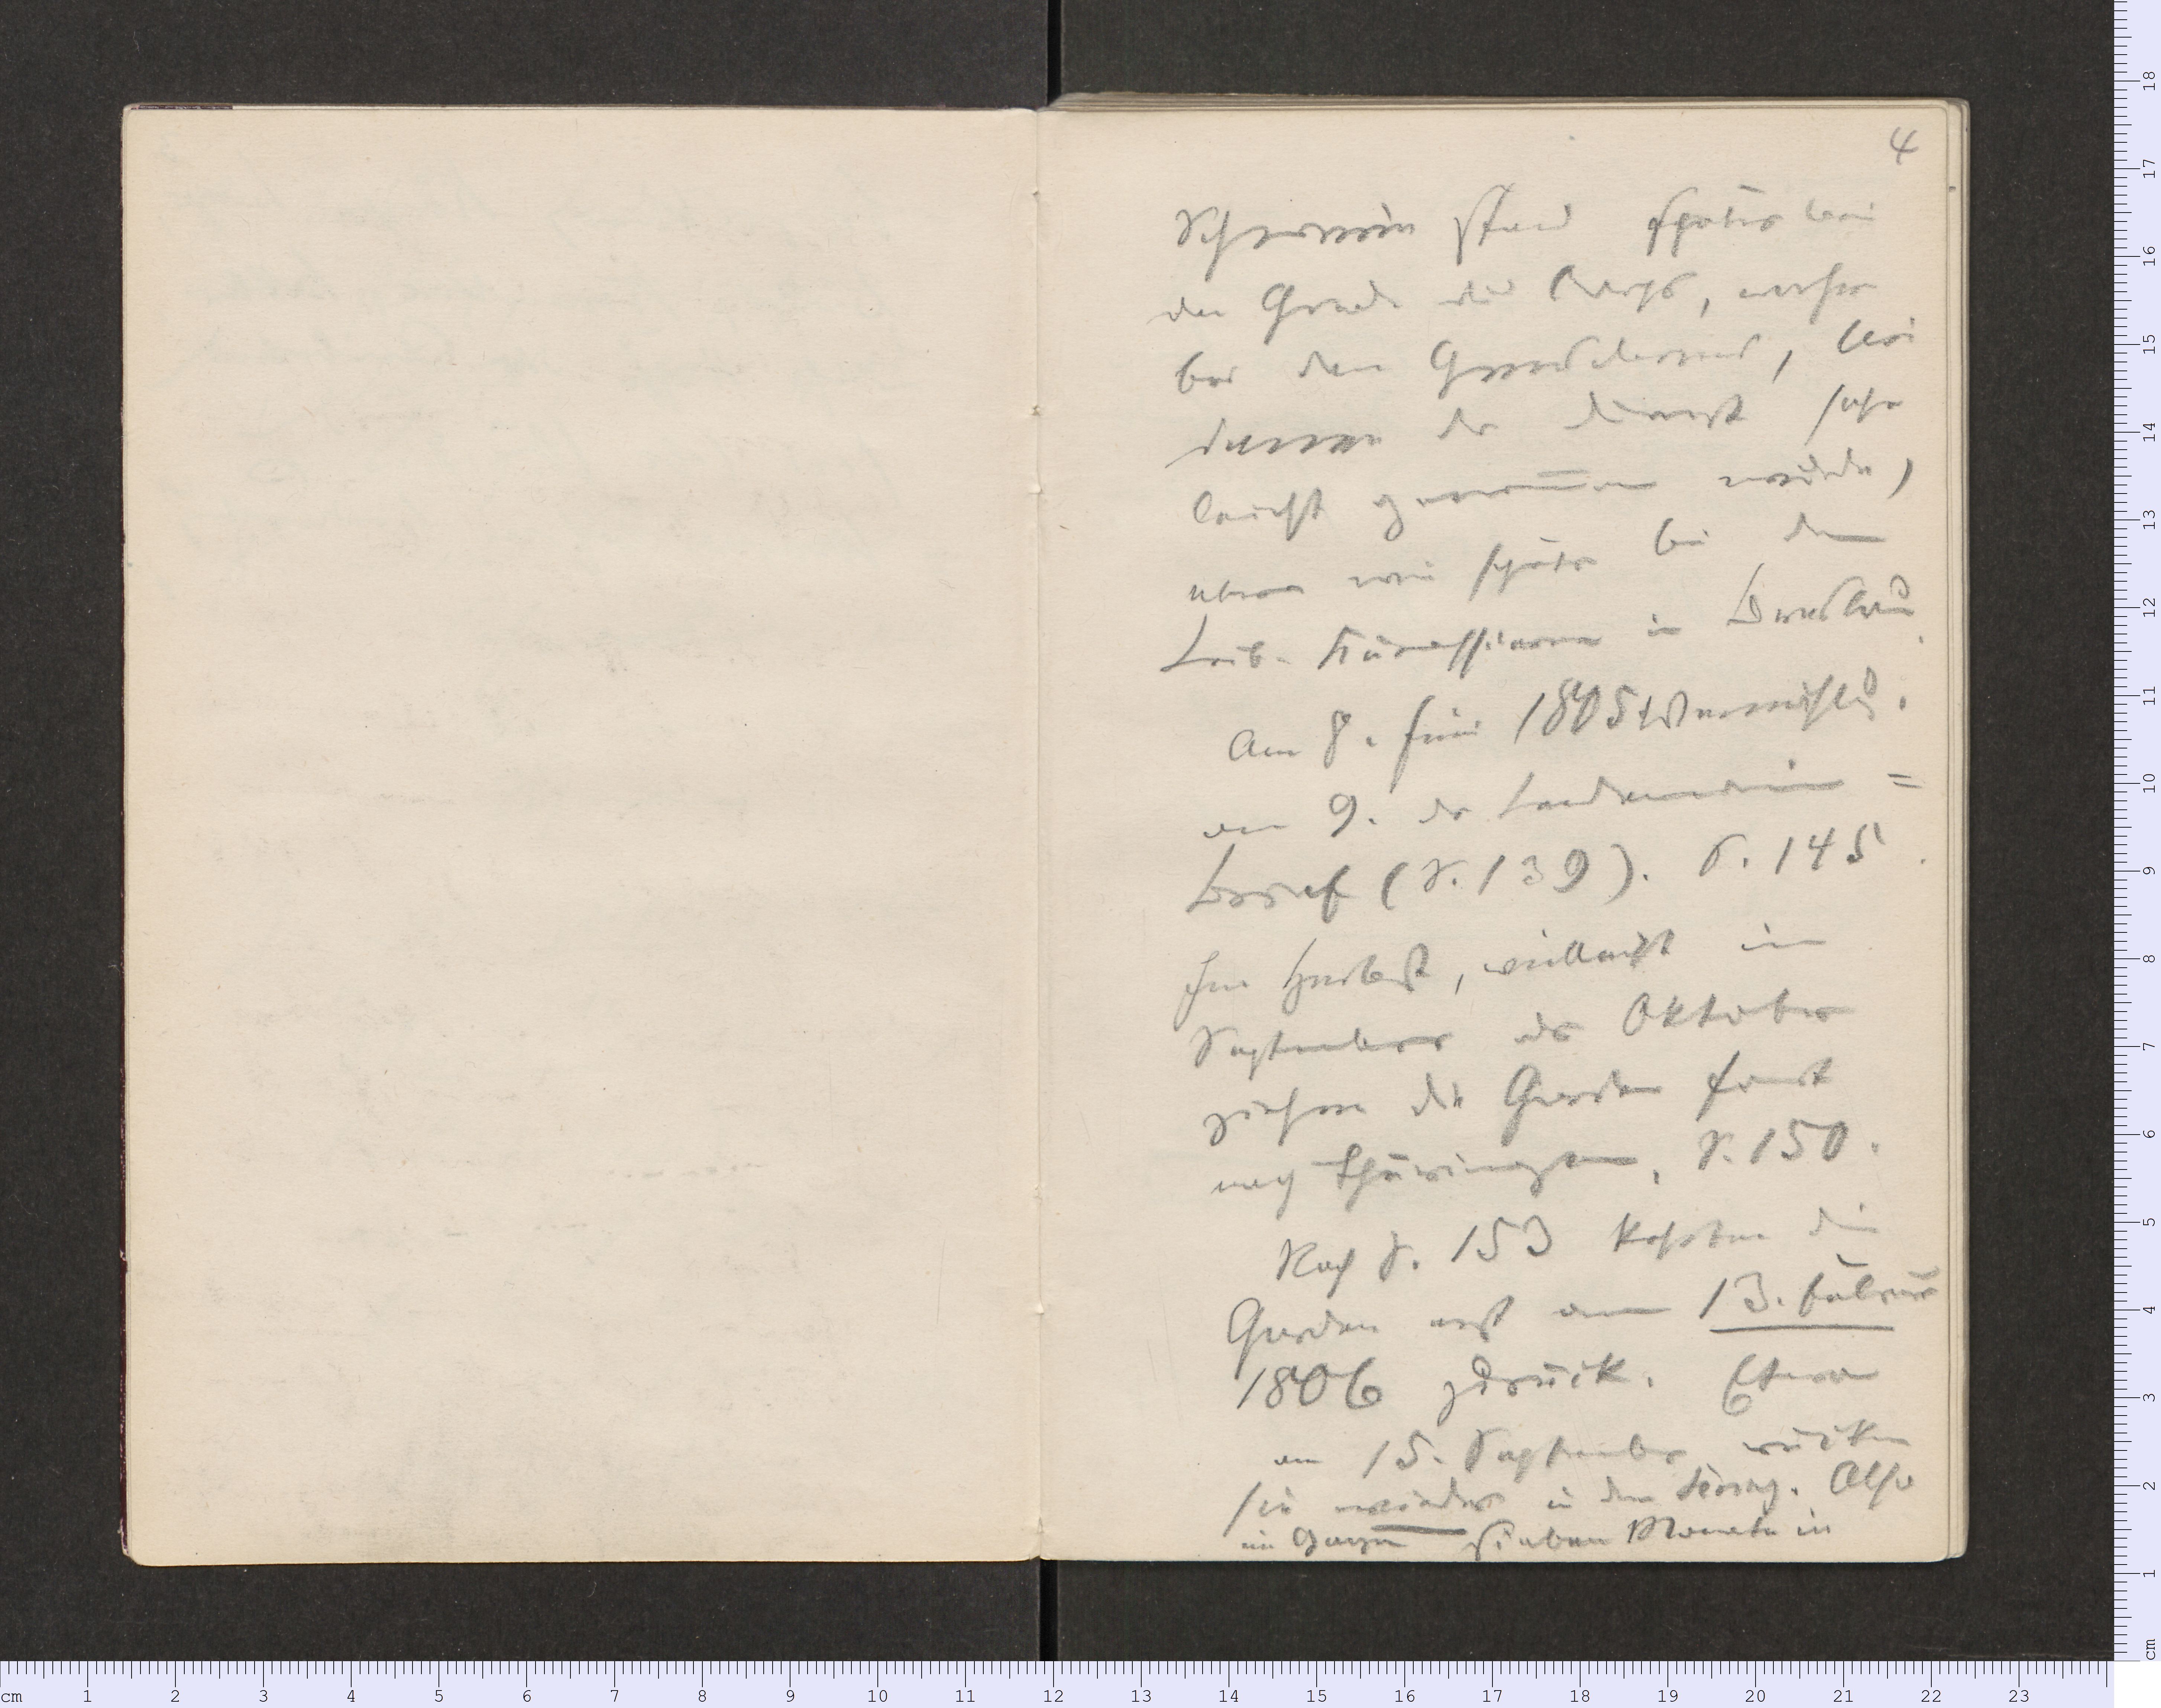 4
Schwerin stand später bei
der Garde du Corps, vorher
bei den Gensdarmes, bei
denen der Dienst sehr
leicht genom̅en wurde,
etwa wie später bei den
Leib-Kürassieren in Breslau.
Am 8. Juni 1805
am 9. der
Brief (S. 139). S. 145.
Im Herbst, vielleicht im
September oder Oktober
ziehen die Garden fort
nach Thüringen, S. 150.
Nach S. 153 kehrten die
Garden erst am 13. Februar
1806 zurück. Etwa
am 15. September rücken
sie wieder in den Krieg. Also
im Ganzen sieben Monate in